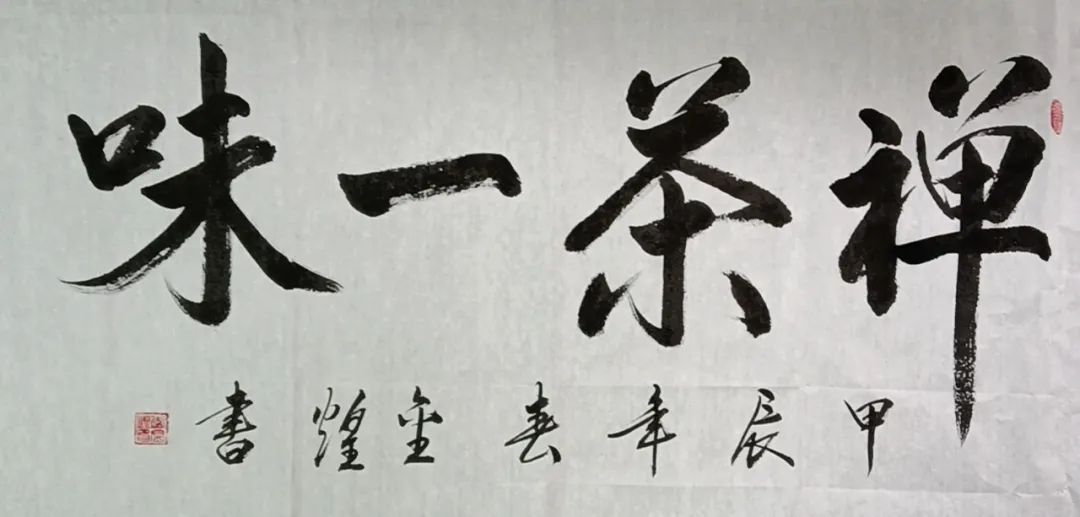 禅茶一味
甲辰年春金煌書